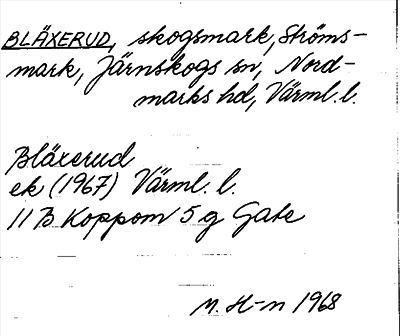 BLÄXERUD, skogsmark, Ströms-
mark, Järnskogs sn, Nord-
marks hd, Värml. l.
Bläxerud
ek (1967) Värml. l.
11 B Koppom 5 g Gate
M. H-n 1968